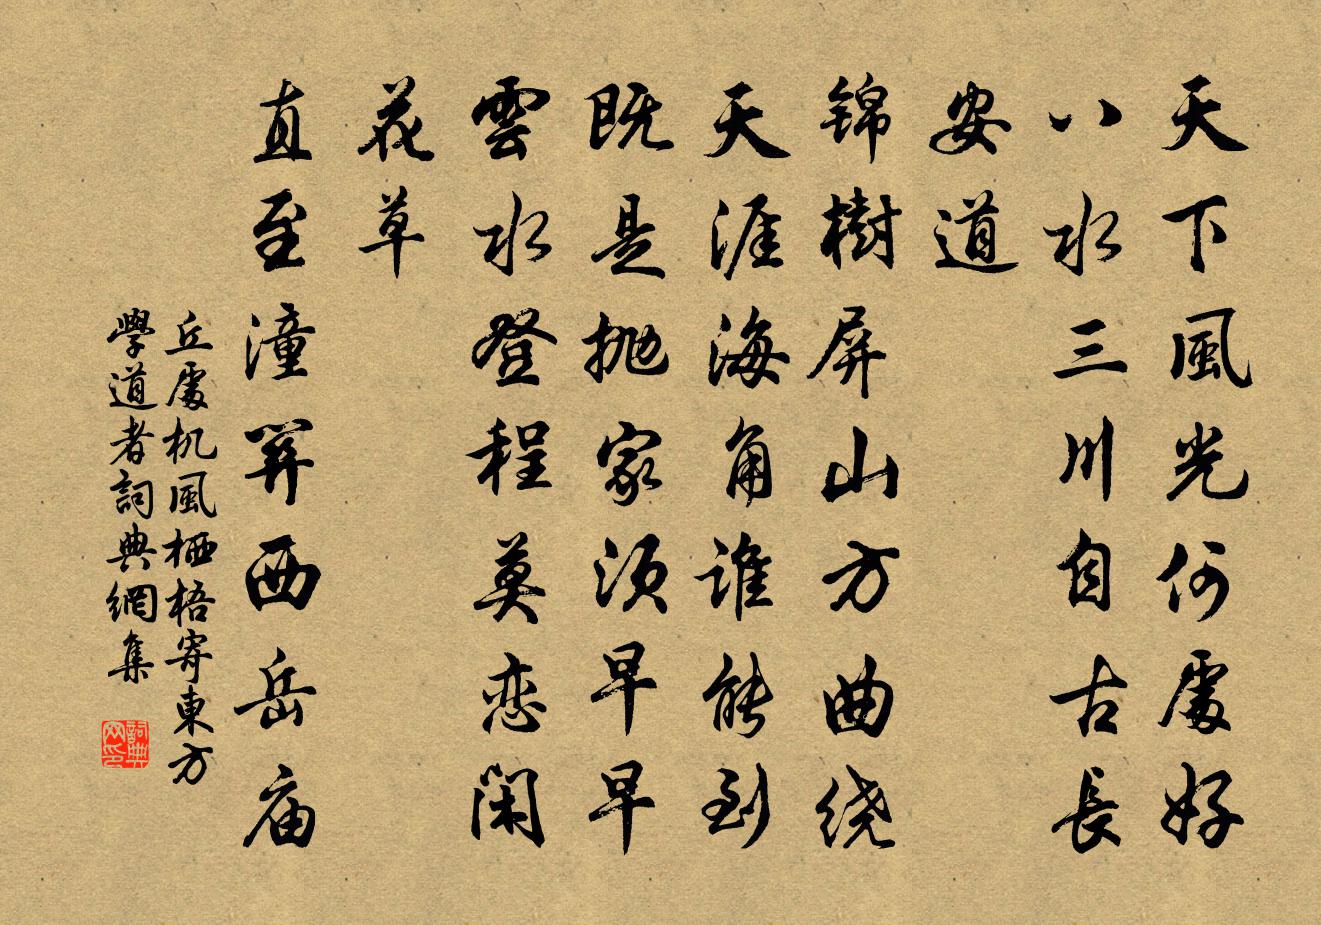 天下風光何處好
八水三川自古長
安道
锦樹屏山方曲绕
天涯海角谁能到
既是抛家须早早
雲水登程莫恋闲
花草
直至潼關西岳庙
丘處机風栖梧寄東方
學道者詞典網集
詞典
网